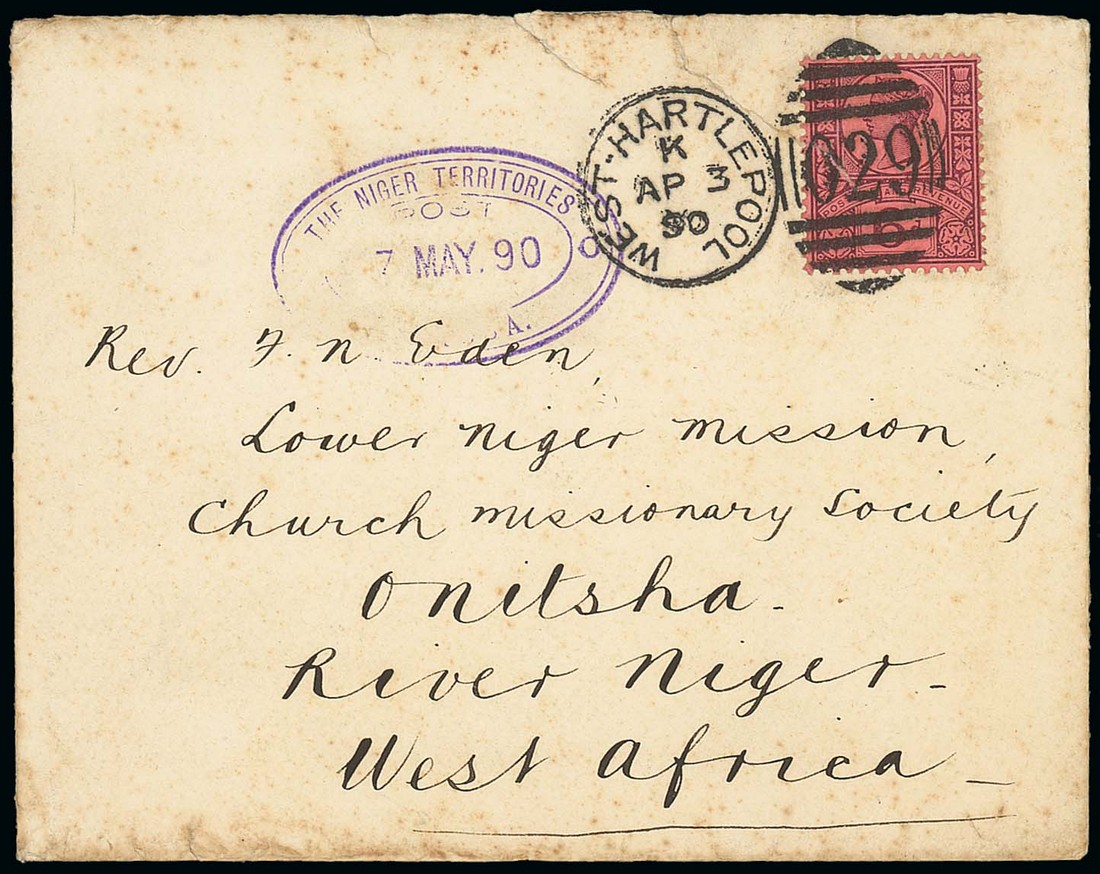 WEST-HARTLEPOOL
K
AP 3
90
029
6D
THE NIGER TERRITORIES
POST
7 MAY. 90
Rev. F. N Eden,
Lower Niger Mission,
Church Missionary Society
Onitsha.
River Niger.
West Africa